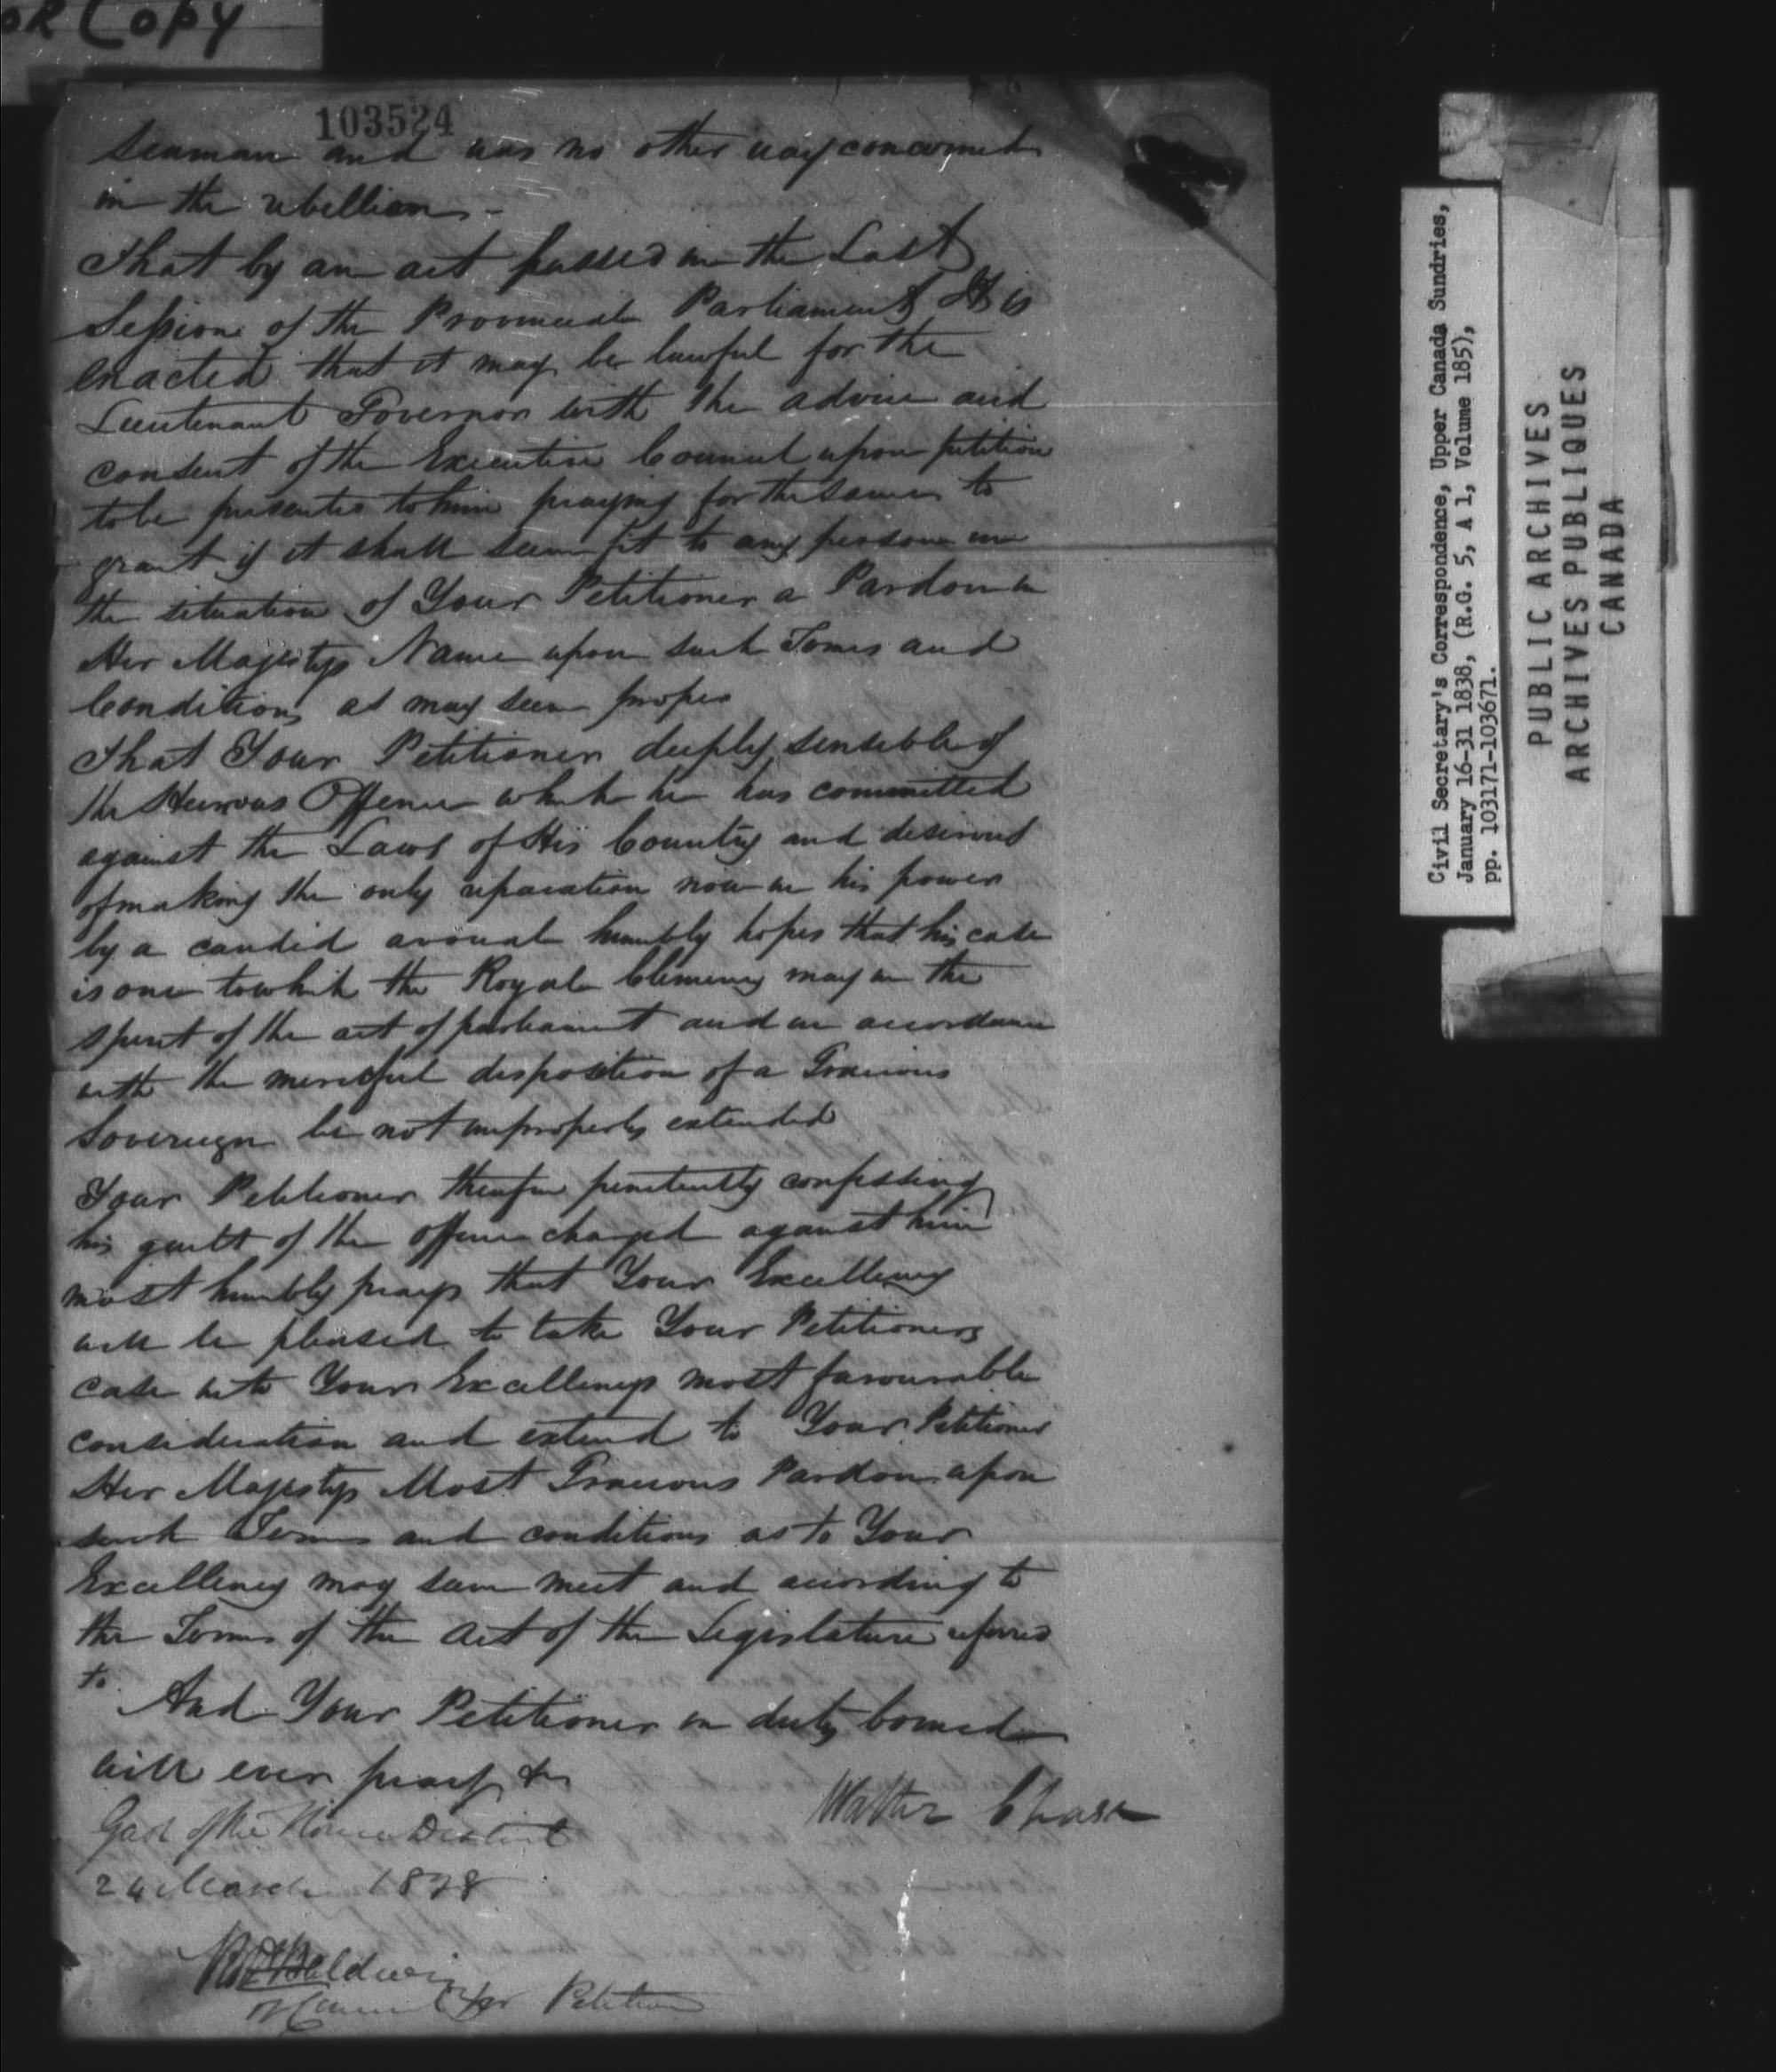 OR COPY
103524
Seaman and was no other way concerned
in the rebellion -
That by an act passed in the Last
Session of the Provincial Parliament It is
enacted that it may be lawful for the
Lieutenant Governor with the advice and
consent of the Executive Council upon petition
to be presented to him praying for the same to
grant if it shall seem fit to any person in
the situation of Your Petitioner a Pardon in
Her Majestys Name upon such Terms and
Conditions as may seem proper
That Your Petitioner deeply sensible of
the Heinous Offence which he has committed
against the Laws of His Country and desirous
of making the only reparation now in his power
by a candid avowal humbly hopes that his case
is one to which the Royal Clemency may in the
spirit of the act of parliament and in accordance
with the merciful disposition of a Gracious
Sovereign be not improperly extended
Your Petitioner therefore penitently confessing
his guilt of the offence charged against him
most humbly prays that Your Excellency
will be pleased to take Your Petitioners
case into Your Excellencys most favourable
consideration and extend to Your Petitioner
Her Majestys Most Gracious Pardon upon
such Terms and conditions as to Your
Excellency may seem meet and according to
the Terms of the Act of the Legislature referred
to.
And Your Petitioner in duty bound
will ever pray &c
Walter Chase
Gaol of the Home District
24 March 1838
Baldwin
of Counsel for Petitioner
Civil Secretary's Correspondence, Upper Canada Sundries,
January 16-31 1838, (R.G. 5, A 1, Volume 185),
pp. 103171-103671.
PUBLIC ARCHIVES
ARCHIVES PUBLIQUES
CANADA